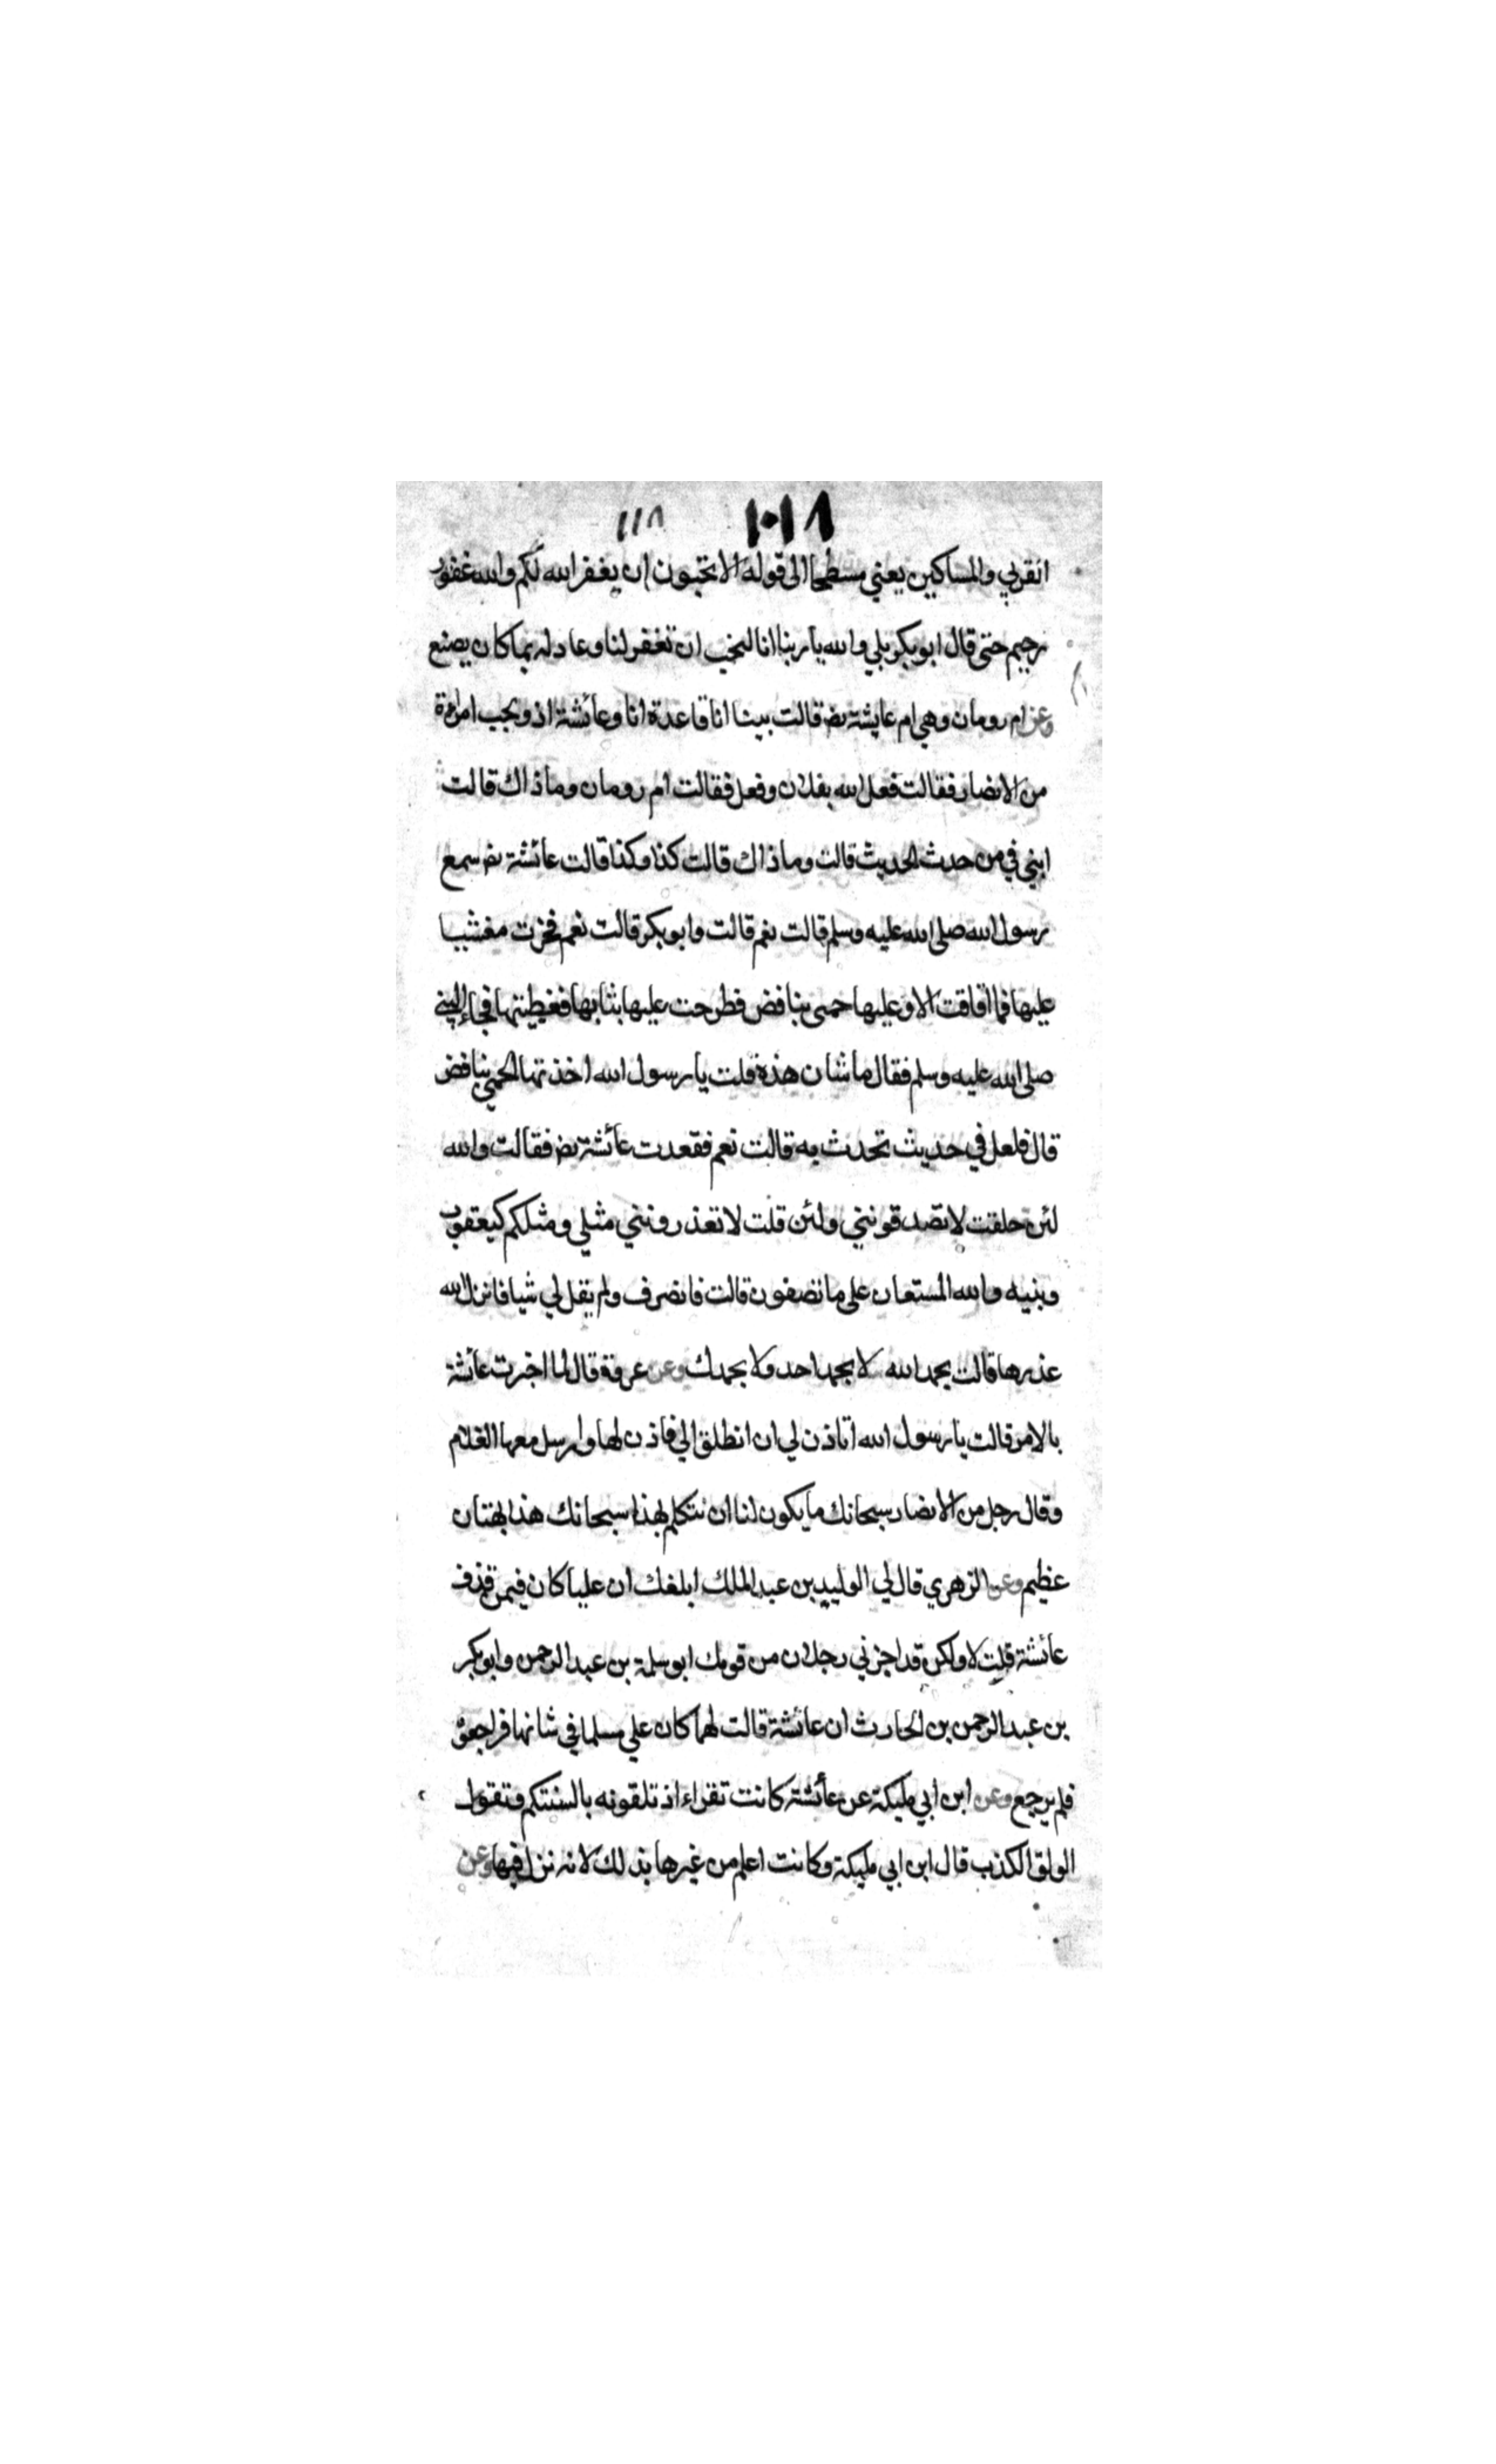 ١٠١٨ ١١٨
القربي والمساكين يعني مسطحا الى قوله الا تحبون ان يغفر الله لكم والله غفور
رحيم حتى قال ابو بكر بلي والله يا ربنا انا لنحب ان تغفر لنا وعاد له بما كان يصنع
وعن ام رومان وهي ام عايشة رض قالت بينا انا قاعدة انا وعائشة اذ ولجت امراة
من الانصار فقالت فعل الله بفلان وفعل فقالت ام رومان وما ذاك قالت
ابني في من حدث الحديث قالت وما ذاك قالت كذا وكذا قالت عائشة رض سمع
رسول الله صلى الله عليه وسلم قالت نعم قالت وابو بكر قالت نعم فخرت مغشيا
عليها فما افاقت الا وعليها حمى بنافض فطرحت عليها ثيابها فغطيتها فجاء النبي
صلى الله عليه وسلم فقال ما شان هذه قلت يا رسول الله اخذتها الحمى بنافض
قال فلعل في حديث تحدث به قالت نعم فقعدت عائشة رض فقالت والله
لئن حلفت لا تصدقونني ولئن قلت لا تعذرونني مثلي ومثلكم كيعقوب
وبنيه والله المستعان على ما تصفون قالت فانصرف ولم يقل لي شيا فانزل الله
عذرها قالت بحمد الله لا بحمد احد ولا بحمدك وعن عروة قال لما اخبرت عائشة
بالامر قالت يا رسول الله اتاذن لي ان انطلق الي فاذن لها وارسل معها الغلام
وقال رجل من الانصار سبحانك ما يكون لنا ان نتكلم بهذا سبحانك هذا بهتان
عظيم وعن الزهري قال لي الوليد بن عبد الملك ابلغك ان عليا كان فيمن قذف
عائشة قلت لا ولكن قد اخبرني رجلان من قومك ابو سلمة بن عبد الرحمن وابو بكر
بن عبد الرحمن بن الحارث ان عائشة قالت لهما كان علي مسلما في شانها فراجعوه
فلم يرجع وعن ابن ابي مليكة عن عائشة كانت تقراء اذ تلقونه بالسنتكم وتقول
الولق الكذب قال ابن ابي مليكة وكانت اعلم من غيرها بذلك لانه نزل فيها وعن